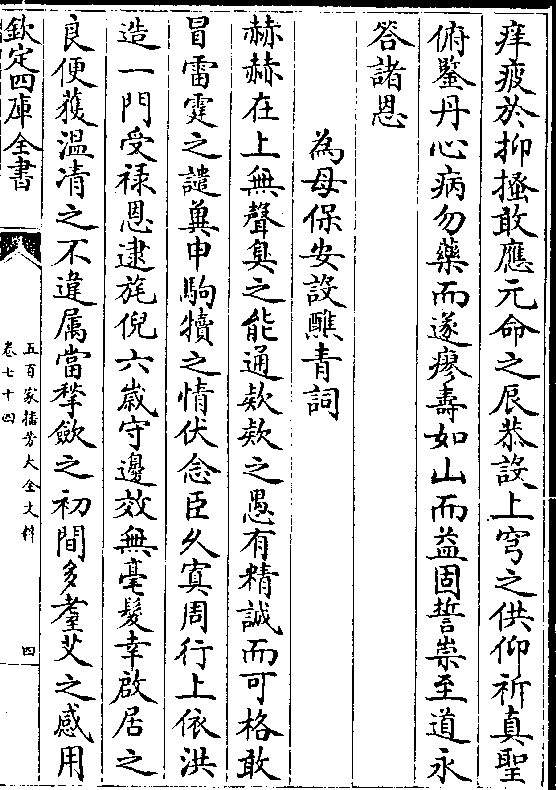 痒疲於抑搔敢應元命之辰恭設上穹之供仰祈真聖
俯鑒丹心病勿藥而遂瘳壽如山而益固誓崇至道永
答諸恩
為母保安設醮青詞
赫赫在上無聲臭之能通欵欵之愚有精誠而可格敢
冒雷霆之譴冀申駒犢之情伏念臣久寘周行上依洪
造一門受祿恩逮旄倪六歲守邊效無毫髮幸啟居之
良便獲温凊之不違属當揫斂之初間多耆艾之感用
欽定四庫全書
五百家播芳大全文粹
卷七十四
四